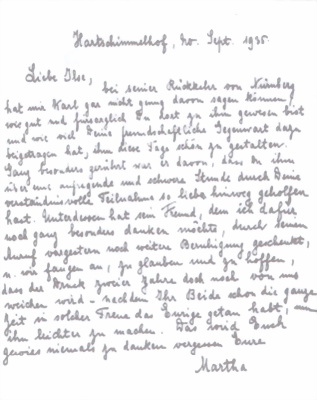 Hartschimmelhof, 20. Sept. 1935.
Liebe Ilse,
bei seiner Rückkehr von Nürnberg
hat mir Karl gar nicht genug davon sagen können,
wie gut und fürsorglich Du dort zu ihm gewesen bist
und wie viel Deine freundschaftliche Gegenwart dazu
beigetragen hat, ihm diese Tage schön zu gestalten.
Ganz besonders gerührt war er davon, dass Du ihm
über eine aufregende und schwere Stunde durch Deine
verständnisvolle Teilnahme so liebe hinweg geholfen
hast. Unterdessen hat sein Freund, dem ich dafür
noch ganz besonders danken möchte, durch seinen
Anruf vorgestern noch weitere Beruhigung geschenkt,
u. wir fangen an, zu glauben und zu hoffen,
dass der Druck zweier Jahre doch noch von uns
weichen wird - nachdem Ihr Beide schon die ganze
Zeit in solcher Treue das Eurige getan habt, um
ihn leichter zu machen. Das wird Euch
gewiss niemals zu danken vergessen Eure
Martha